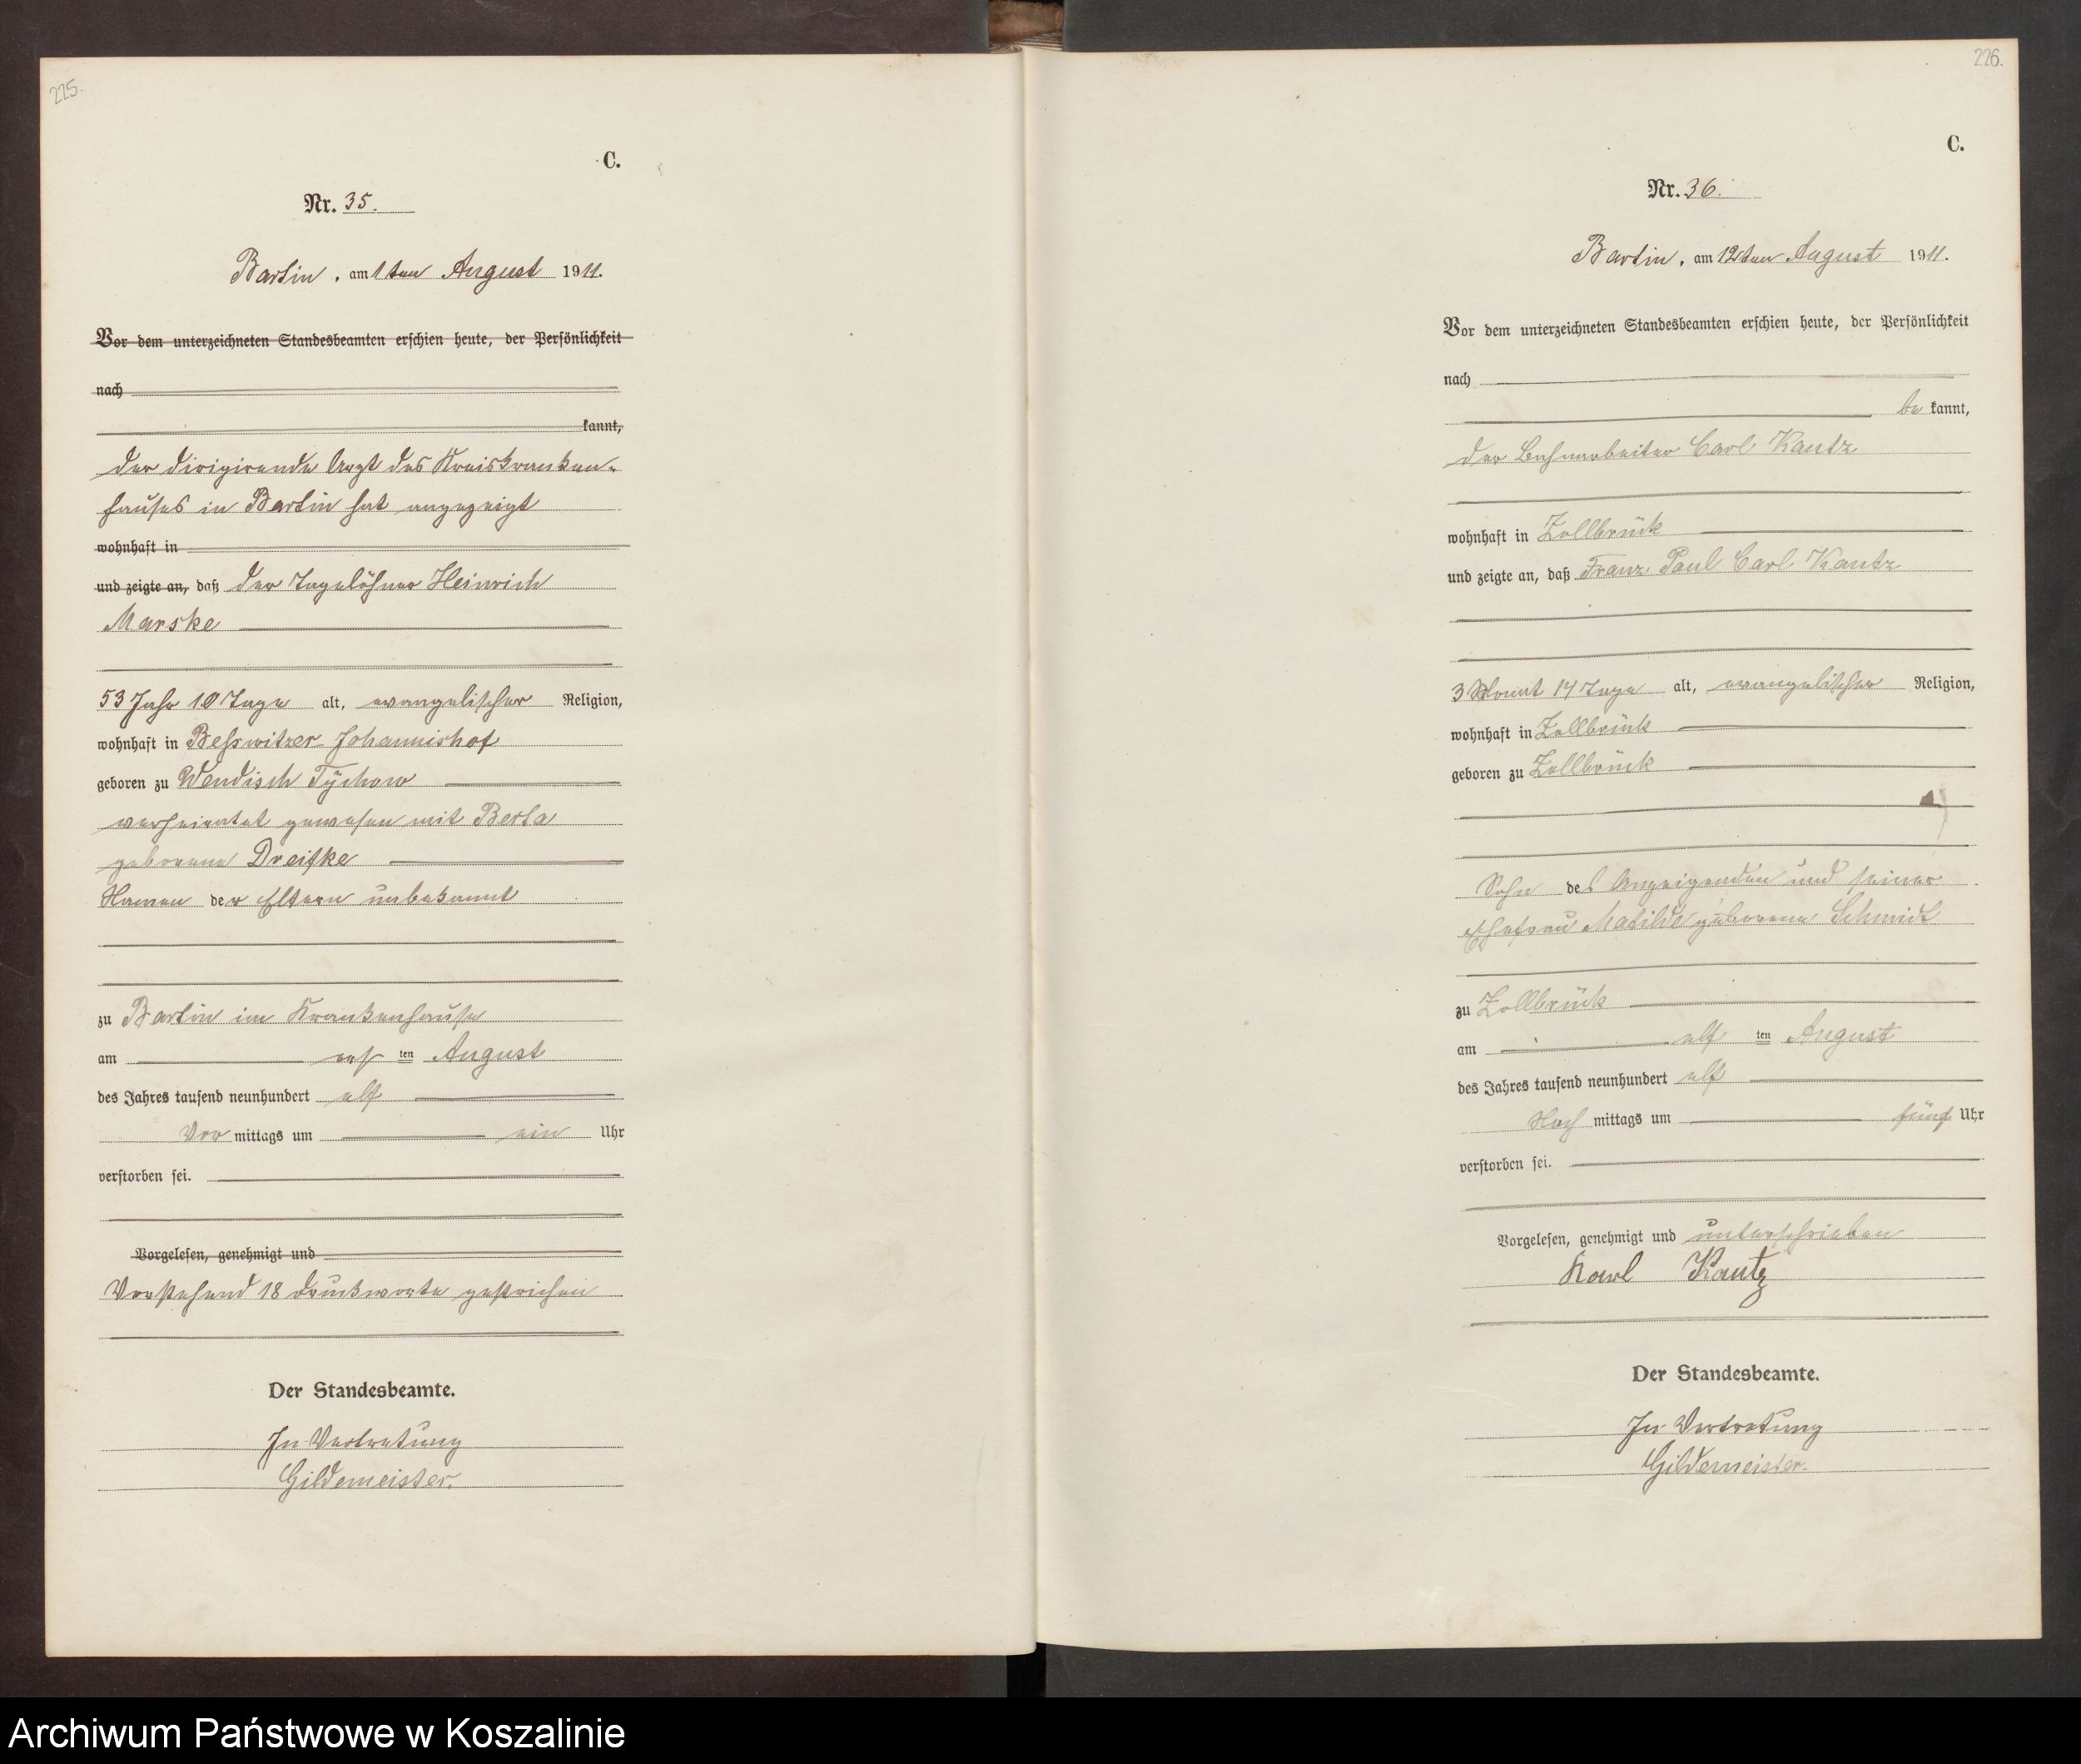 225.
C.
Nr. 35.
Bartin, am 1ten August 1911.
Vor dem unterzeichneten Standesbeamten erschien heute, der Persönlichkeit
nach
kannt,
der dirigirende Arzt des Kreiskranken-
hauses in Bartin hat angezeigt
wohnhaft in
und zeigte an, daß der Tagelöhner Heinrich
Marske
53 Jahr 10 Tage alt, evangelischer Religion,
wohnhaft in Besswitzer Johannishof
geboren zu Wendisch Tychow
verheiratet gewesen mit Berta
geborene Dreifke
Namen der Eltern unbekannt
zu Bartin im Krankenhause
am ersten August
des Jahres tausend neunhundert elf
Vor mittags um ein Uhr
verstorben sei.
Vorgelesen, genehmigt und
Vorstehend 18 Druckworte gestrichen
Der Standesbeamte.
In Vertretung
Gildemeister.
226.
C.
Nr. 36.
Bartin, am 12ten August 1911.
Vor dem unterzeichneten Standesbeamten erschien heute, der Persönlichkeit
nach
be kannt,
der Bahnarbeiter Carl Kautz
wohnhaft in Zollbrück
und zeigte an, daß Franz Paul Carl Kautz
3 Monat 14 Tage alt, evangelischer Religion,
wohnhaft in Zollbrück
geboren zu Zollbrück
Sohn des Anzeigenden und seiner
Ehefrau Matilde geborene Schmidt
zu Zollbrück
am elf ten August
des Jahres tausend neunhundert elf
Nach mittags um fünf Uhr
verstorben sei.
Vorgelesen, genehmigt und unterschrieben
Karl Kautz
Der Standesbeamte.
In Vertretung
Gildemeister.
Archiwum Państwowe w Koszalinie